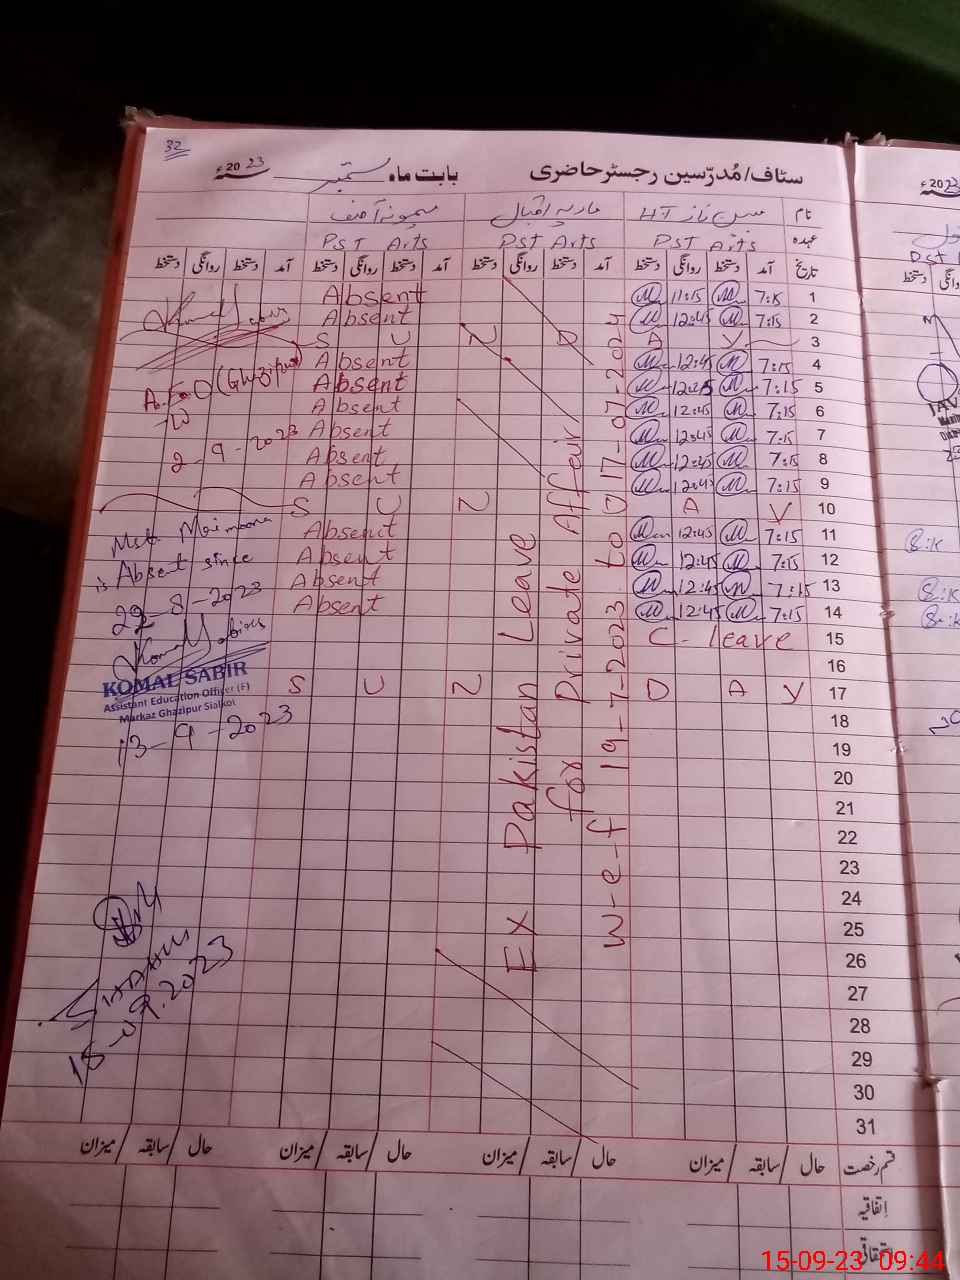 32
سٹاف/مُدرّسین رجسٹر حاضری بابت ماہ ستمبر 2023ء
نام HT ماریہ اقبال میمونہ آصف
عہدہ PST Arts PST Arts PST Arts
تاریخ آمد دستخط روانگی دستخط آمد دستخط روانگی دستخط آمد دستخط روانگی دستخط آمد دستخط روانگی دستخط
1 7:15 11:15 Absent
2 7:15 12:45 Absent
3 S U N D A Y
4 7:15 12:45 Absent
5 7:15 12:45 Absent
6 7:15 12:45 Absent
7 7:15 12:45 Absent
8 7:15 12:45 Absent
9 7:15 12:45 Absent
10 S U N D A Y
11 7:15 12:45 Absent
12 7:15 12:45 Absent
13 7:15 12:45 Absent
14 7:15 12:45 Absent
15 C-leave
16
17 S U N D A Y
18
19
20
21
22
23
24
25
26
27
28
29
30
31
Ex Pakistan Leave
for Private Affair
w-e-f 19-7-2023 to 17-07-2024
A.E.O (Ghazipur)
2-9-2023
Mst. Maimoona
is Absent since
29-8-2023
Komal Sabir
KOMAL SABIR
Assistant Education Officer (F)
Markaz Ghazipur Sialkot
13-9-2023
15-09-2023
قسم رخصت حال / سابقہ / میزان حال / سابقہ / میزان حال / سابقہ / میزان حال / سابقہ / میزان
اتفاقیہ
2023ء
PST
دستخط
15-09-23 09:44